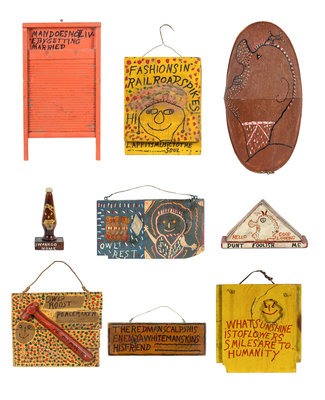 MANDOESNOLIV
EBYGETTING
MARRIED
FASHIONSIN
RAILROADSPIKES
HI
LAFFITSMUSICTOTHE
SOUL
OWL'S
REST
HELLO
GOOD
LOOKING
DUNT FOOLISH ME
OWLS
ROOST
PEACEMAKER
THEREDMANSCALPSHIS
ENEMYAWHITEMANSKINS
HISFRIEND
WHATSUNSHINE
ISTOFLOWERS
SMILESARETO
HUMANITY